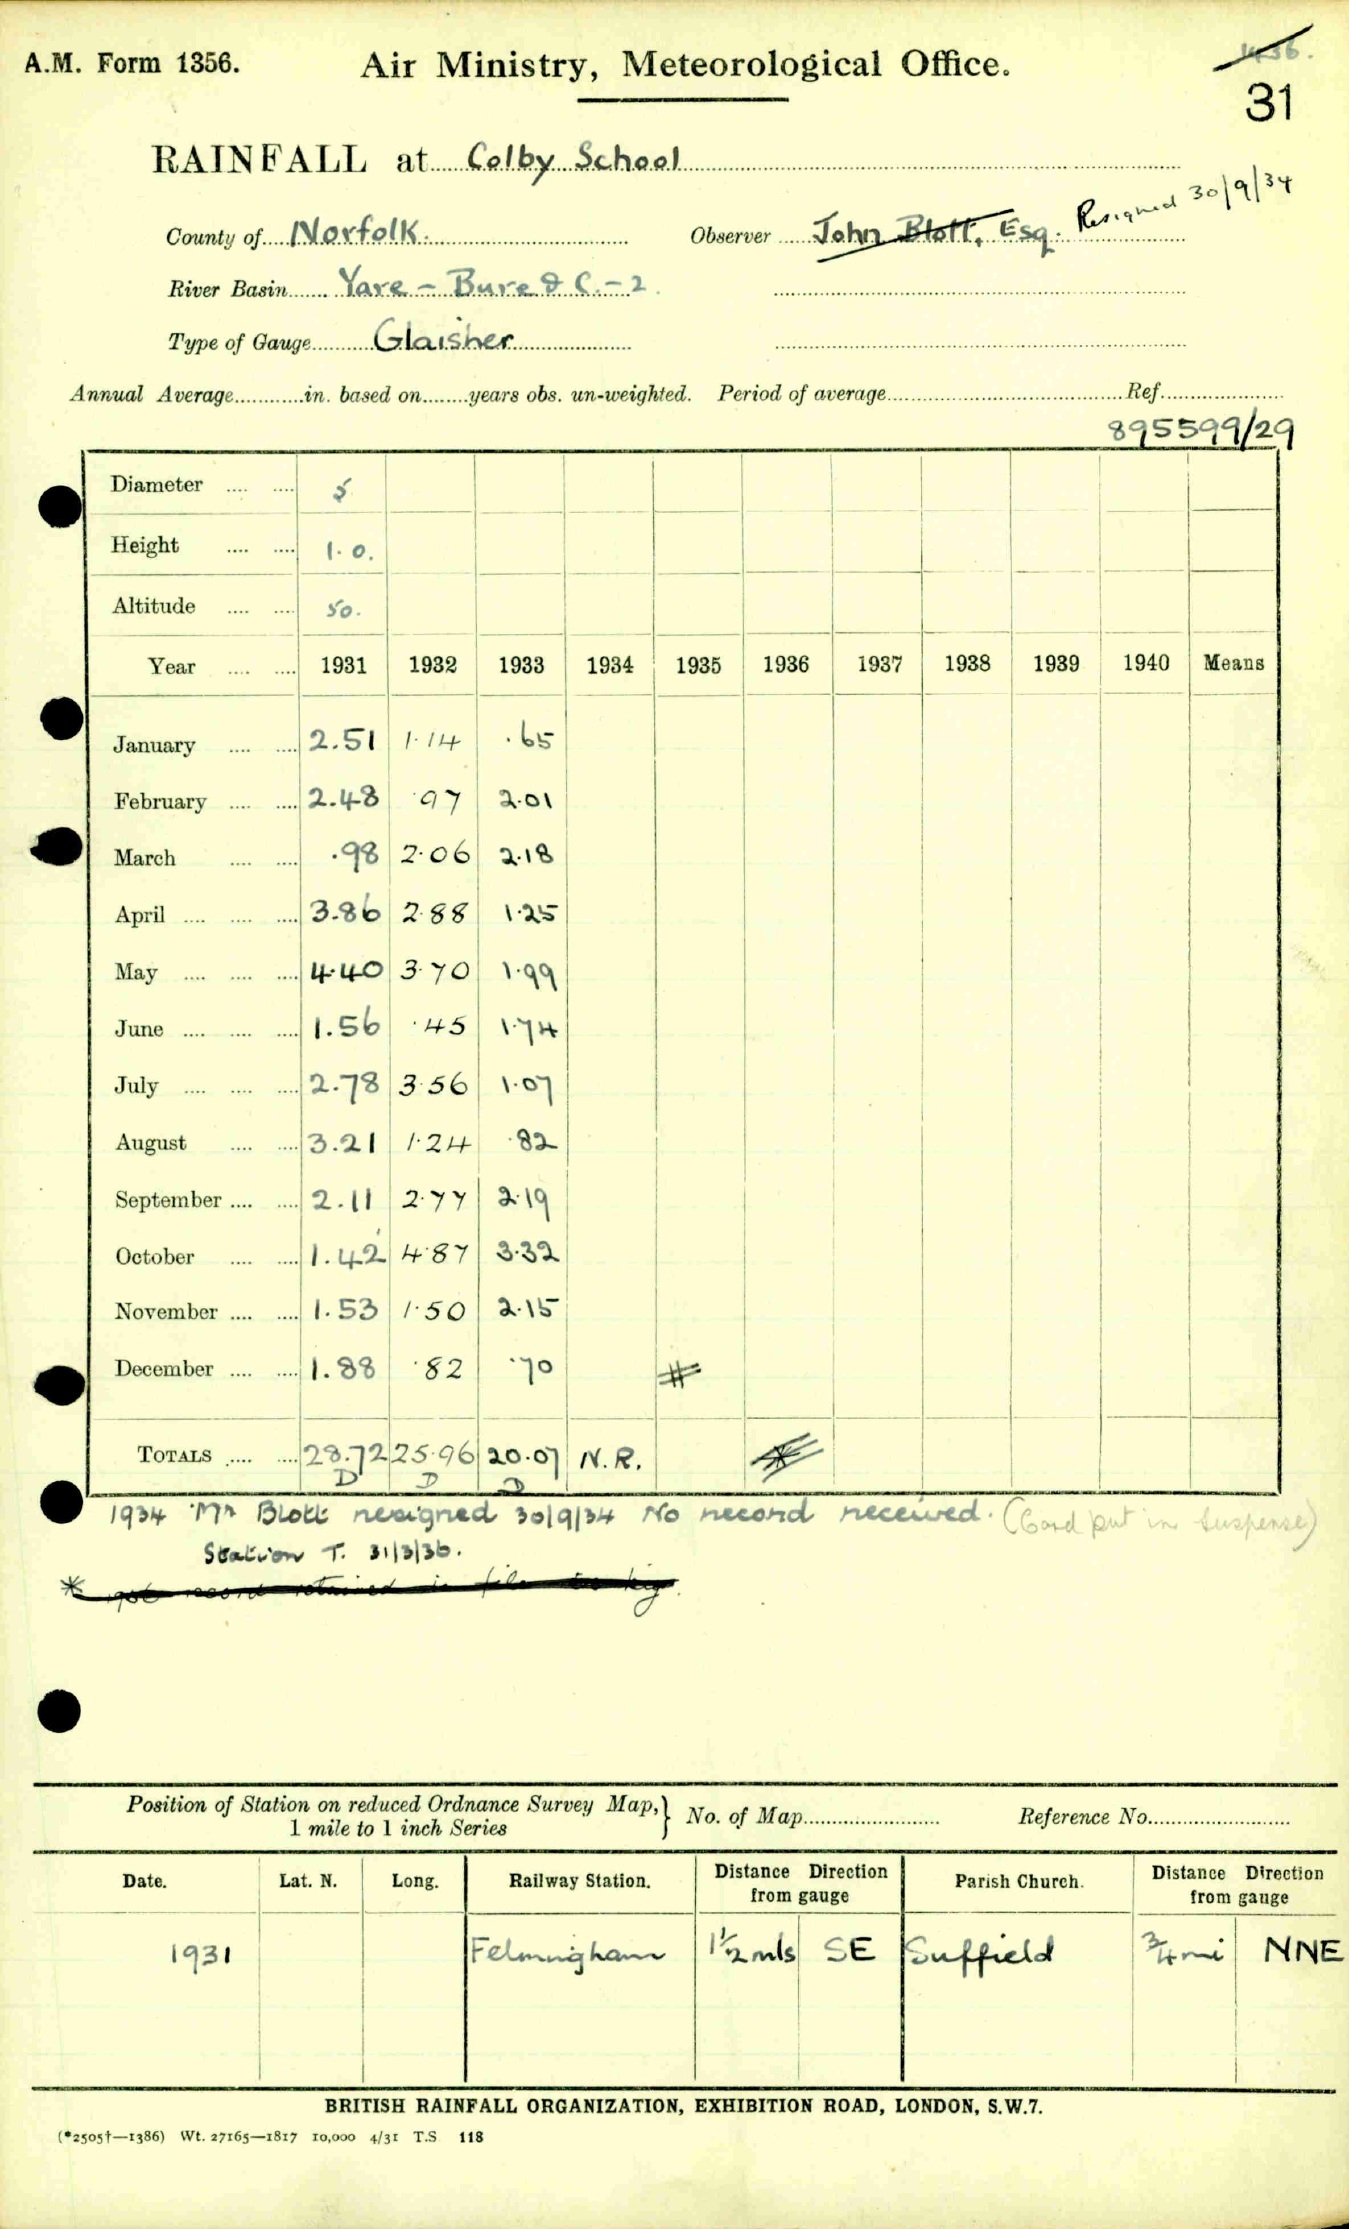 A.M. Form 1356. Air Ministry, Meteorological Office.
31
RAINFALL at Colby School
Resigned 30/9/34
County of Norfolk. Observer John Blott, Esq.
River Basin Yare - Bure & C. - 2.
Type of Gauge Glaisher
Annual Average in. based on years obs. un-weighted. Period of average Ref.
895599/29
Diameter 5
Height 1.0.
Altitude 50.
Year 1931 1932 1933 1934 1935 1936 1937 1938 1939 1940 Means
January 2.51 1.14 .65
February 2.48 .97 2.01
March .98 2.06 2.18
April 3.86 2.88 1.25
May 4.40 3.70 1.99
June 1.56 .45 1.74
July 2.78 3.56 1.07
August 3.21 1.24 .82
September 2.11 2.77 2.19
October 1.42 4.87 3.32
November 1.53 1.50 2.15
December 1.88 .82 .70
TOTALS 28.72 25.96 20.07 N.R.
D D D
1934 Mr Blott resigned 30/9/34 No record received. (Card put in suspense)
Station T. 31/3/36.
* record retained in file
Position of Station on reduced Ordnance Survey Map, 1 mile to 1 inch Series } No. of Map Reference No.
Date. Lat. N. Long. Railway Station. Distance Direction from gauge Parish Church. Distance Direction from gauge
1931 Felmingham 1½ mls SE Suffield ¾ mi NNE
BRITISH RAINFALL ORGANIZATION, EXHIBITION ROAD, LONDON, S.W.7.
(*2505†—1386) Wt. 27165—1817 10,000 4/31 T.S 118